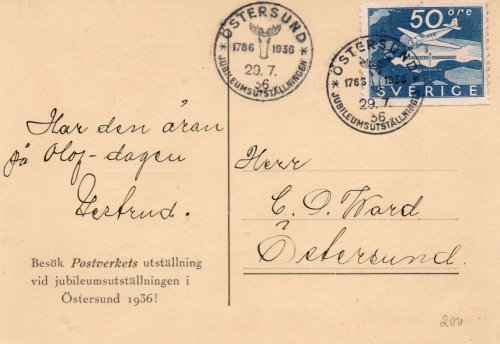 ÖSTERSUND
1786 1936
29.7.
36
JUBILEUMSUTSTÄLLNINGEN
ÖSTERSUND
1786 1936
29.7.
36
JUBILEUMSUTSTÄLLNINGEN
50 öre
SVERIGE
Har den äran
på Olof-dagen
Gestrud.
Herr
C. O. Ward
Östersund.
Besök Postverkets utställning
vid jubileumsutställningen i
Östersund 1936!
200